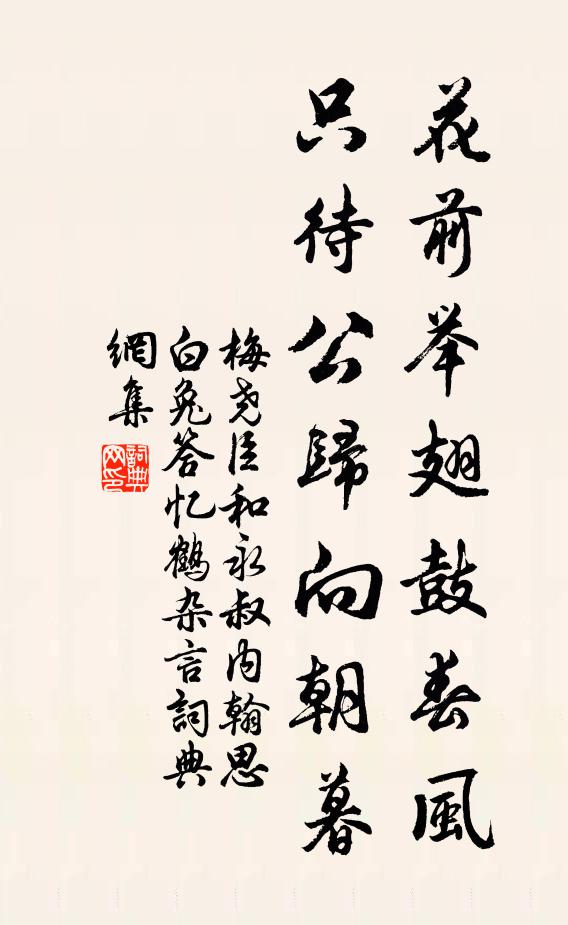 花前举翅鼓春風
只待公歸向朝暮
梅尧臣和永叔内翰思
白兔答忆鶴杂言詞典
網集
詞典网印